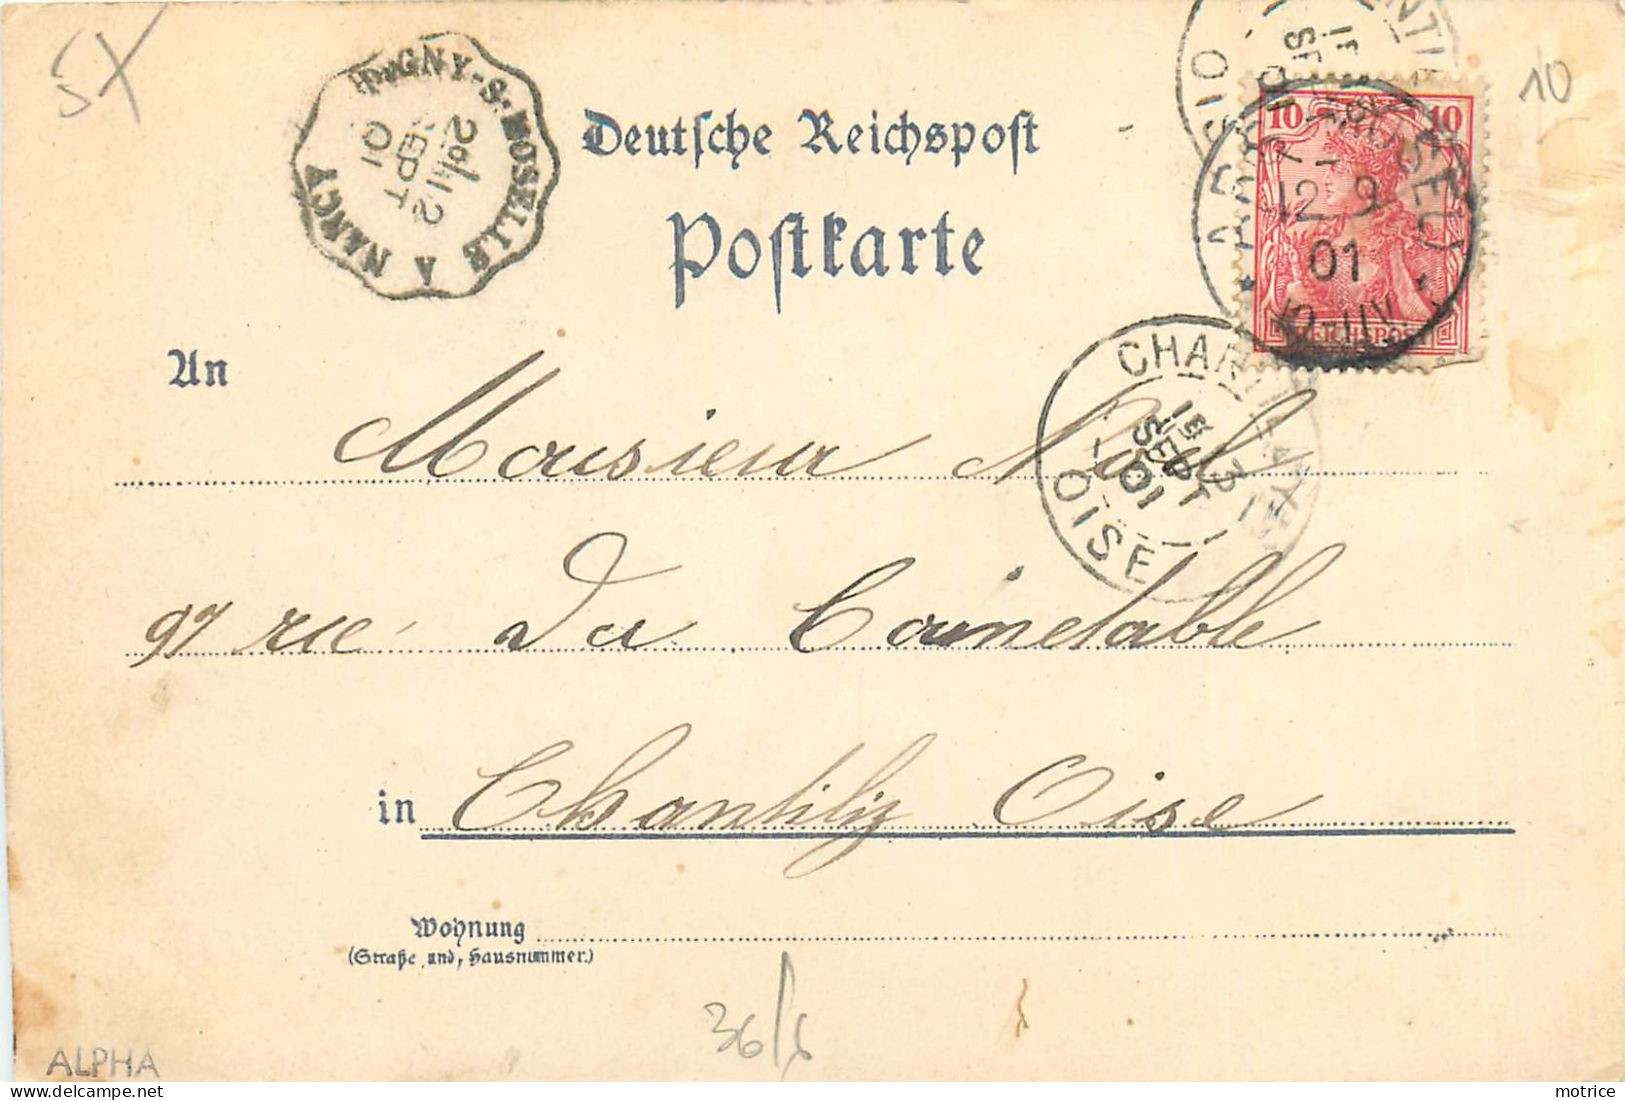 5X
PAGNY-S-MOSELLE A NANCY
2º 12
SEPT
01
Deutsche Reichspost
Postkarte
10
10 10
12 9
01
REICHSPOST
An
Monsieur
CHANTILLY
1E
SEPT
01
OISE
97 rue Du Connetable
in Chantilly Oise
Wohnung
(Straße und Hausnummer.)
36/6
ALPHA
motrice